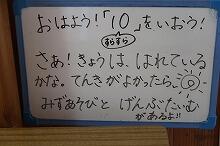 おはよう!「10」をいおう!
すらすら
さぁ!きょうは、はれている
かな。てんきがよかったら、
みずあそびと げんぶたいむ
があるよ!!